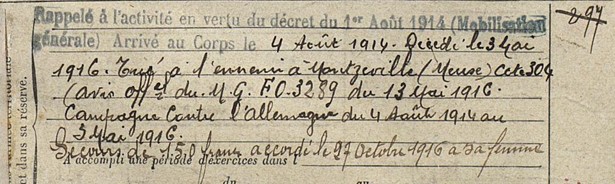 Rappelé à l'activité en vertu du décret du 1er Août 1914 (Mobilisation
297
générale) Arrivé au Corps le 4 Août 1914. Décédé le 3 Mai
1916. Tué à l'ennemi à Montzeville (Meuse) Cote 304
(avis offel du M.G. FO-3289 du 13 Mai 1916.
Campagne Contre l'Allemagne du 4 Août 1914 au
3 Mai 1916.
Secours de 150 francs accordé le 27 Octobre 1916 à sa femme
A accompli une période d'exercices dans l
du au
ct dans sa réserve.